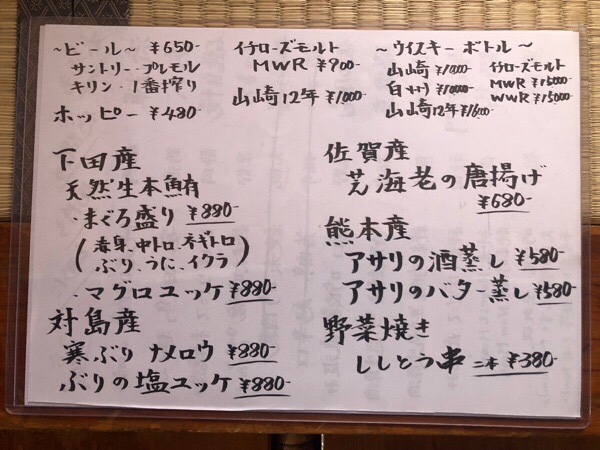 ~ビール~ ¥650-
サントリー・プレモル
キリン・1番搾り
ホッピー ¥480-
イチローズモルト
MWR ¥900-
山崎12年 ¥1000-
~ウイスキーボトル~
山崎
白
山崎12年
イチローズモルト
MWR ¥15000-
WWR ¥15000-
下田産
天然生本鮪
・まぐろ盛り ¥880-
ぶり、うに、イクラ
・マグロユッケ ¥880-
対島産
寒ぶりナメロウ ¥880-
ぶりの塩ユッケ ¥880-
佐賀産
芝海老の唐揚げ
¥680-
熊本産
アサリの酒蒸し ¥580-
アサリのバター蒸し ¥580-
野菜焼き
ししとう串 二本 ¥380-